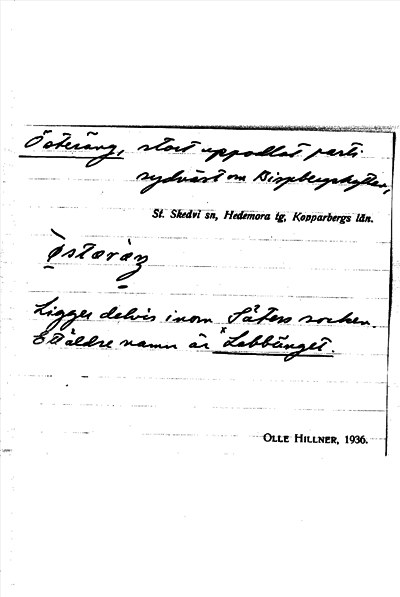 Österäng, stort uppodlat parti
sydväst om Bispbergshyttan,
St. Skedvi sn, Hedemora tg, Kopparbergs län.
Ligger delvis inom Säters socken.
Ett äldre namn är ˣLabbänget.
OLLE HILLNER, 1936.